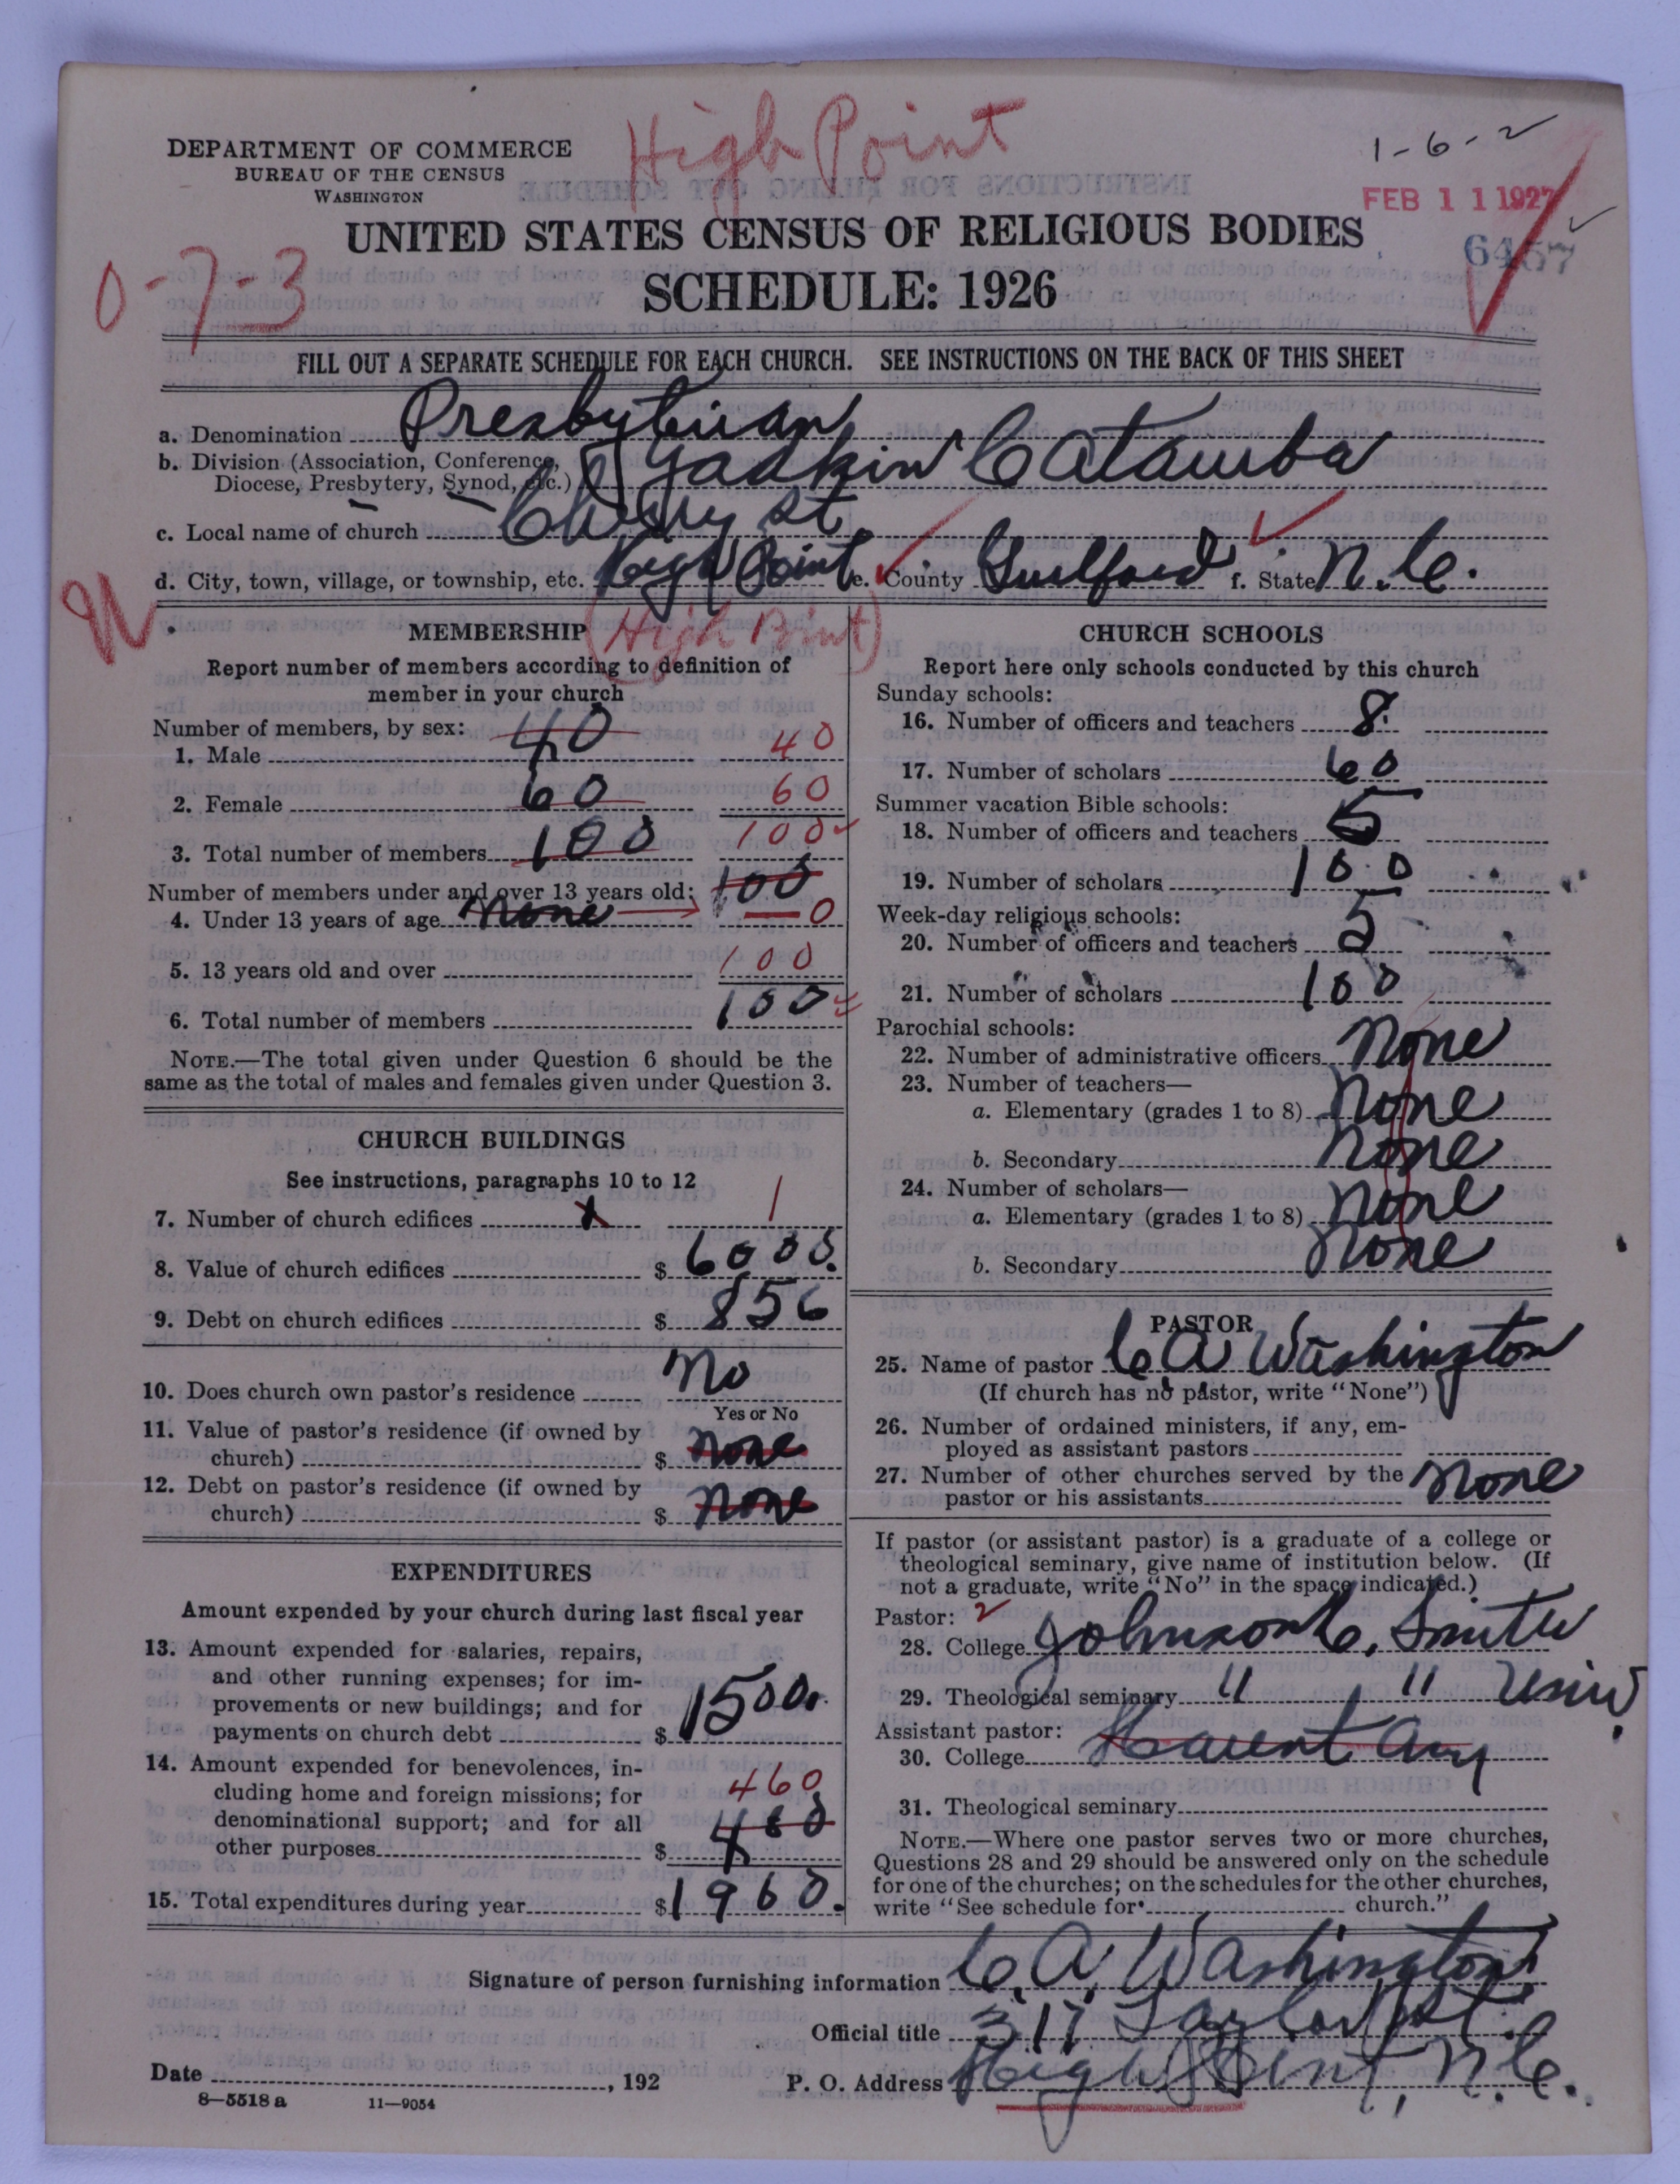 High Point
1-6-2
DEPARTMENT OF COMMERCE
BUREAU OF THE CENSUS
WASHINGTON
FEB 11 1927
6457
UNITED STATES CENSUS OF RELIGIOUS BODIES
0-7-3
SCHEDULE: 1926
FILL OUT A SEPARATE SCHEDULE FOR EACH CHURCH. SEE INSTRUCTIONS ON THE BACK OF THIS SHEET
a. Denomination Presbyterian
b. Division (Association, Conference, Diocese, Presbytery, Synod, etc.) Yadkin Catawba
c. Local name of church Cherry St.
d. City, town, village, or township, etc. High Point e. County Guilford f. State N.C.
(High Point)
MEMBERSHIP
Report number of members according to definition of
member in your church
Number of members, by sex:
1. Male 40 40
2. Female 60 60
3. Total number of members 100 100
Number of members under and over 13 years old: 100
4. Under 13 years of age None 0
5. 13 years old and over 100
6. Total number of members 100
NOTE.—The total given under Question 6 should be the
same as the total of males and females given under Question 3.
CHURCH BUILDINGS
See instructions, paragraphs 10 to 12
7. Number of church edifices 1
8. Value of church edifices $ 6000.
9. Debt on church edifices $ 856
10. Does church own pastor's residence No
Yes or No
11. Value of pastor's residence (if owned by
church) $ none
12. Debt on pastor's residence (if owned by
church) $ none
EXPENDITURES
Amount expended by your church during last fiscal year
13. Amount expended for salaries, repairs,
and other running expenses; for im-
provements or new buildings; and for
payments on church debt $ 1500.
14. Amount expended for benevolences, in-
cluding home and foreign missions; for 460
denominational support; and for all
other purposes $ 460
15. Total expenditures during year $ 1960.
CHURCH SCHOOLS
Report here only schools conducted by this church
Sunday schools:
16. Number of officers and teachers 8
17. Number of scholars 60
Summer vacation Bible schools:
18. Number of officers and teachers 5
19. Number of scholars 100
Week-day religious schools:
20. Number of officers and teachers 5
21. Number of scholars 100
Parochial schools:
22. Number of administrative officers None
23. Number of teachers—
a. Elementary (grades 1 to 8) None
b. Secondary None
24. Number of scholars—
a. Elementary (grades 1 to 8) None
b. Secondary None
PASTOR
25. Name of pastor C A Washington
(If church has no pastor, write "None")
26. Number of ordained ministers, if any, em-
ployed as assistant pastors
27. Number of other churches served by the
pastor or his assistants None
If pastor (or assistant pastor) is a graduate of a college or
theological seminary, give name of institution below. (If
not a graduate, write "No" in the space indicated.)
Pastor: 2
28. College Johnson C. Smith
29. Theological seminary " " Univ.
Assistant pastor:
30. College Havent any
31. Theological seminary
NOTE.—Where one pastor serves two or more churches,
Questions 28 and 29 should be answered only on the schedule
for one of the churches; on the schedules for the other churches,
write "See schedule for church."
Signature of person furnishing information C. A. Washington
Official title 317 Taylor St.
Date , 192 P. O. Address High Point, N.C.
8—5518 a 11—9054